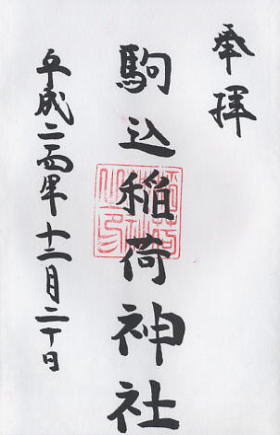 奉拝
駒込稲荷神社
平成二十四年十二月二十日